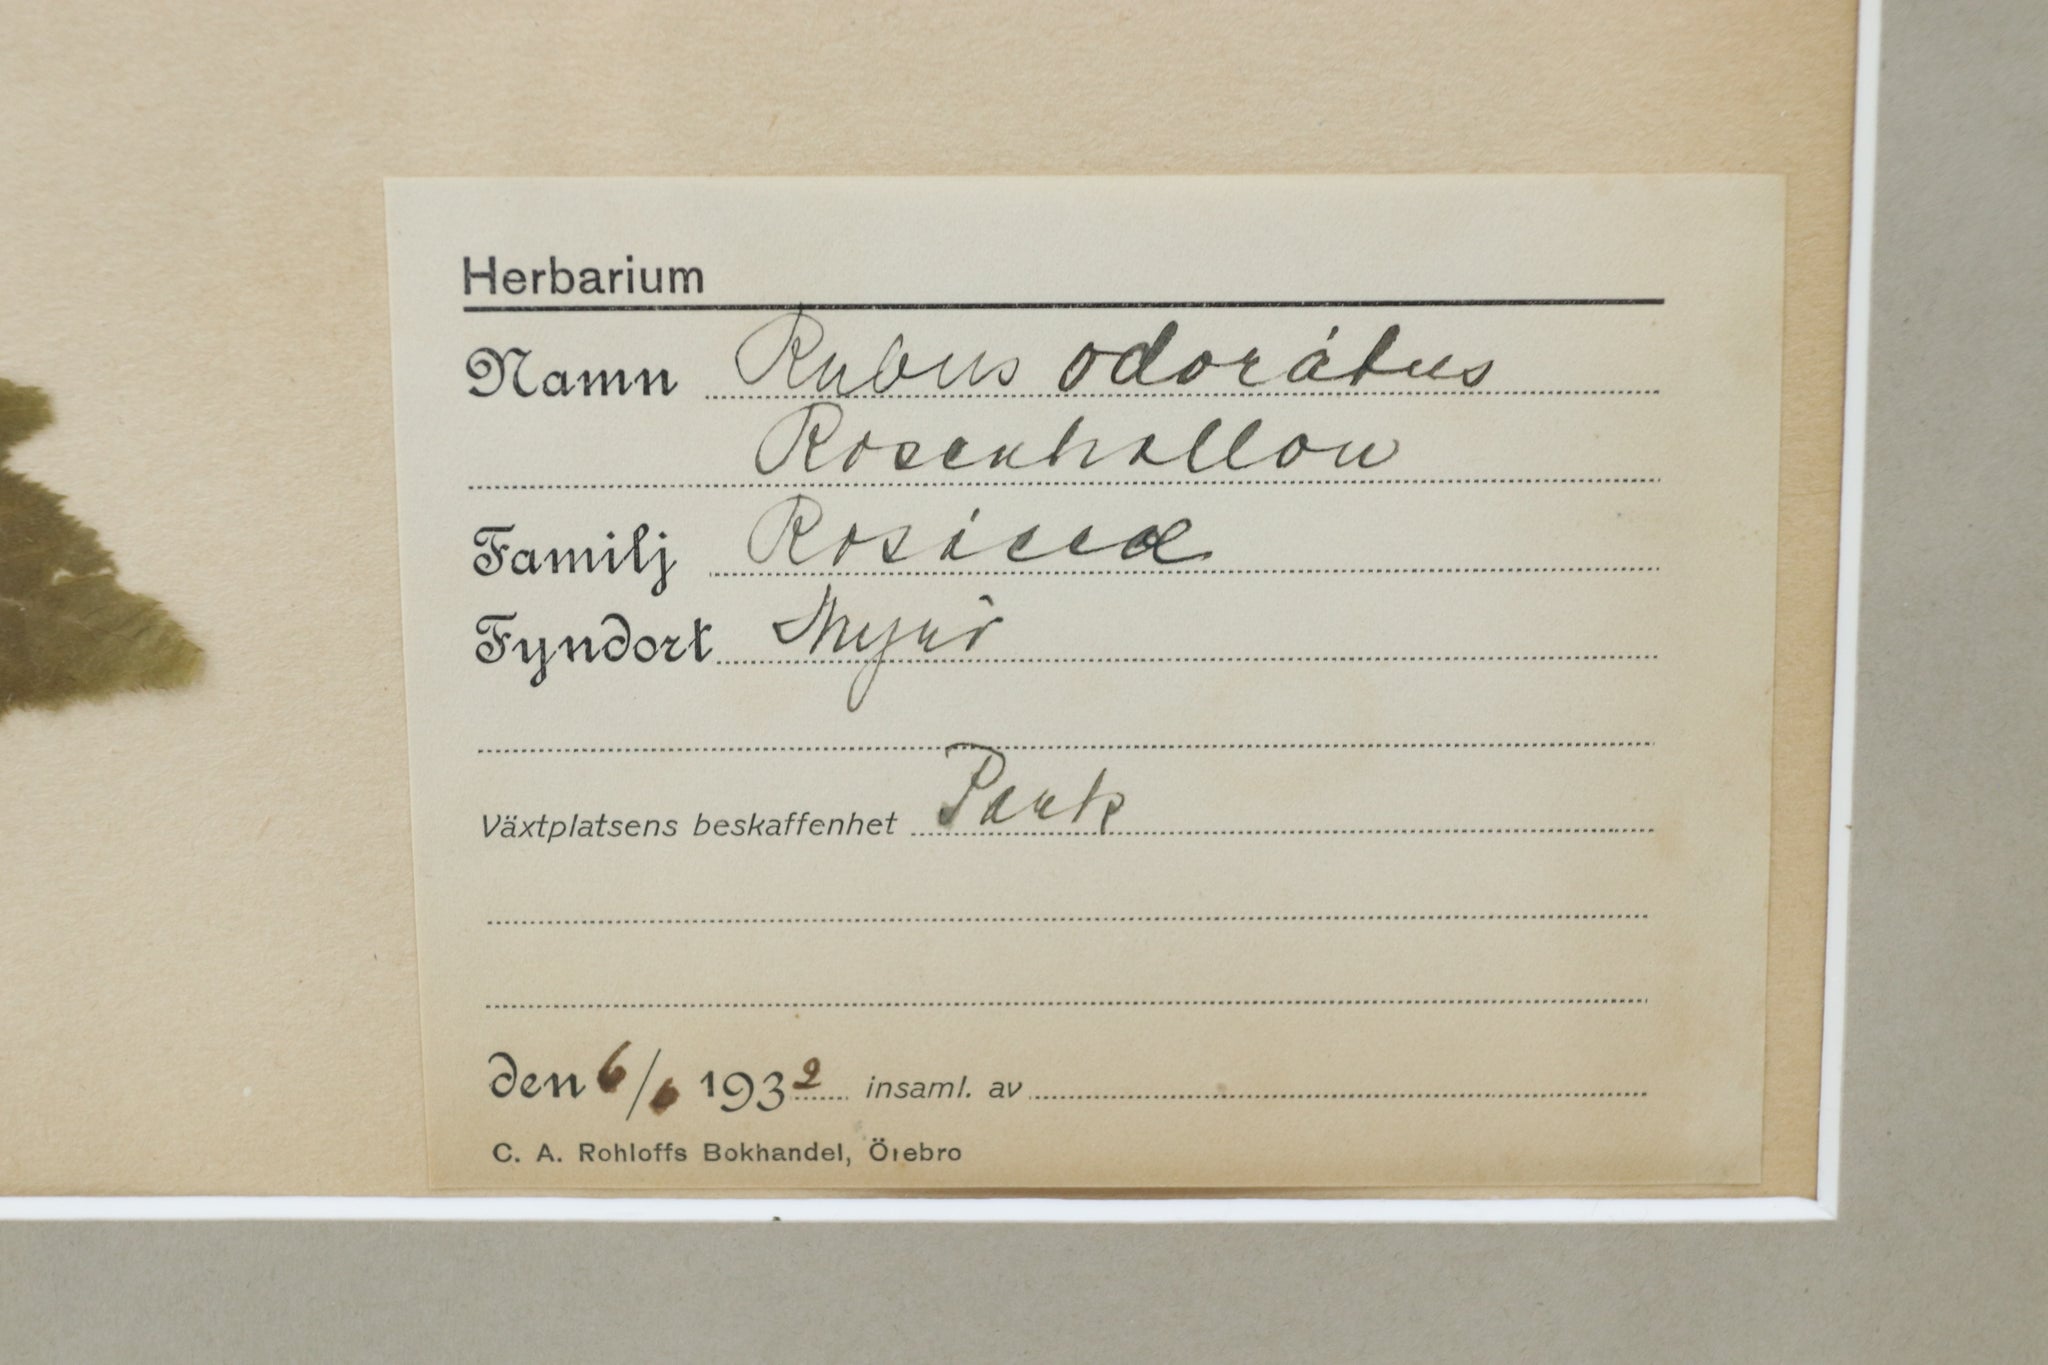 Herbarium
Namn Rubus odorátus
Rosenhallon
Familj Rosáceæ
Fyndort
Växtplatsens beskaffenhet Park
den 6/6 1932 insaml. av
C. A. Rohloffs Bokhandel, Örebro